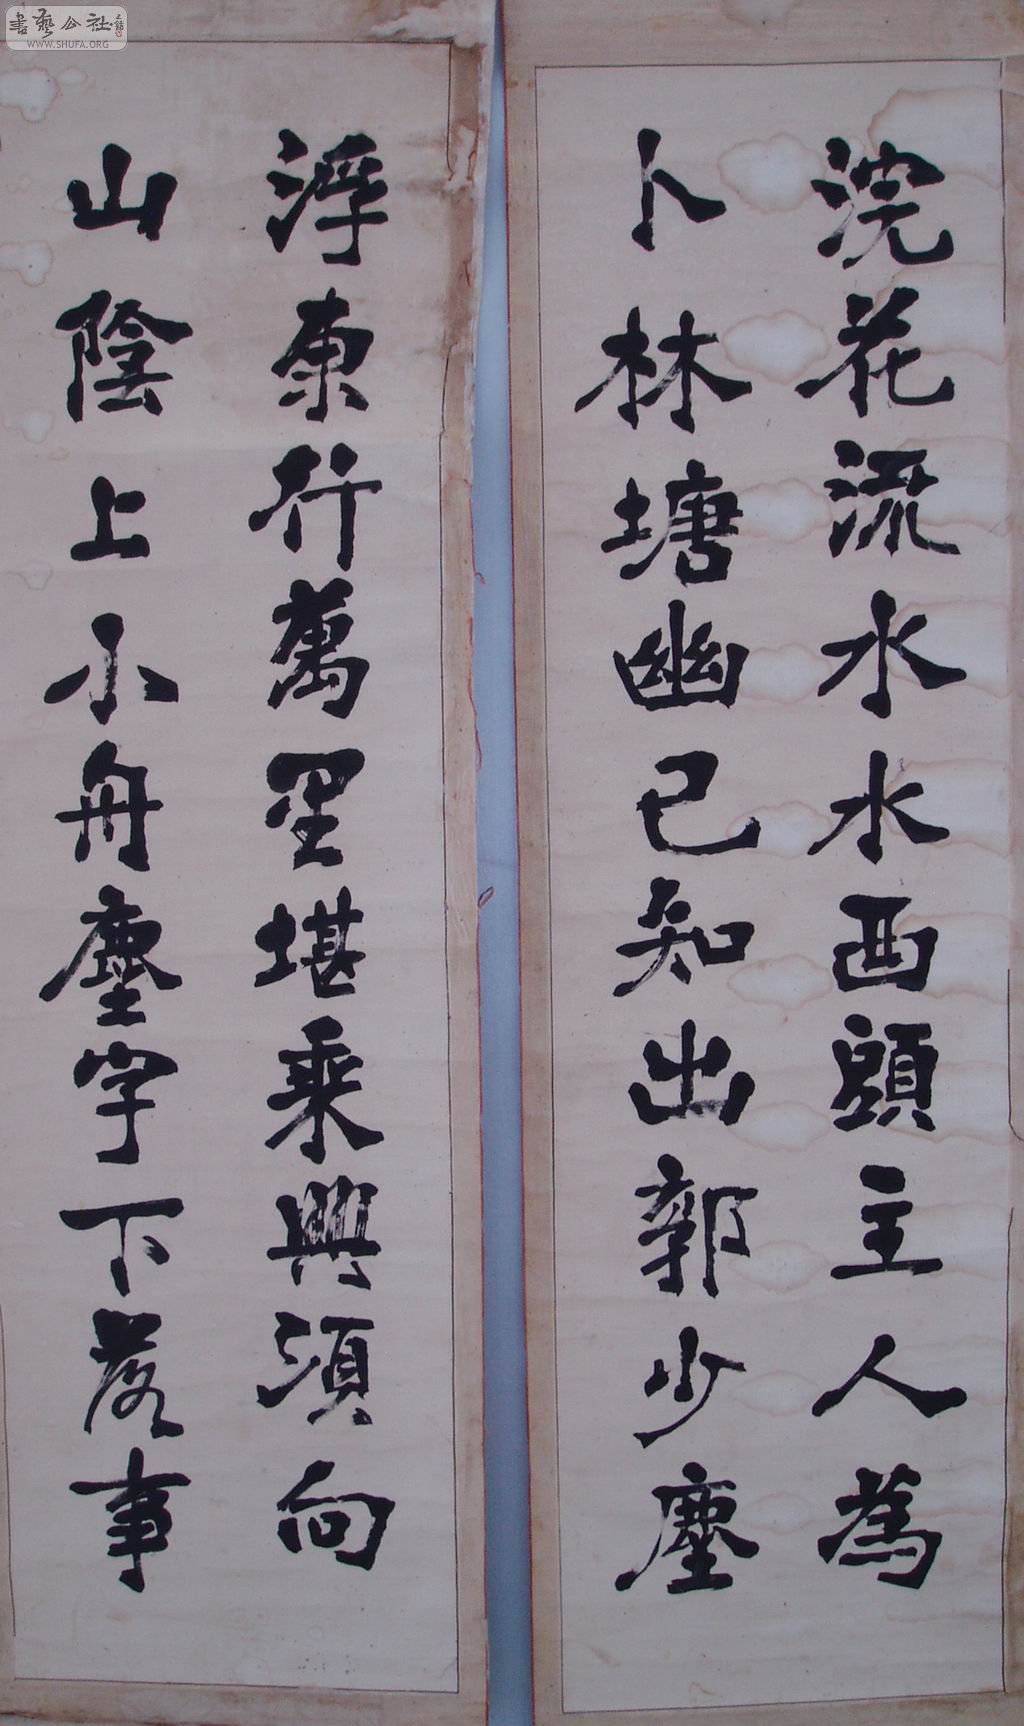 書藝公社
WWW.SHUFA.ORG
浣花流水水西頭主人為
卜林塘幽已知出郭少塵
浮東行萬里堪乘興須向
山陰上小舟塵字下落事